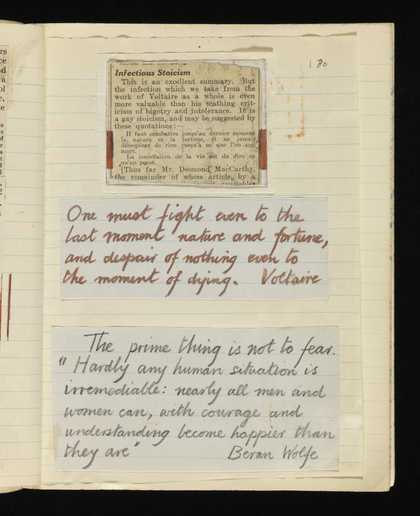 80
Infectious Stoicism
This is an excellent summary. But
the infection which we take from the
work of Voltaire as a whole is even
more valuable than his scathing crit-
icism of bigotry and intolerance. It is
a gay stoicism, and may be suggested by
these quotations:—
Il faut combattre jusqu'au dernier moment
la nature et la fortune, et ne jamais
désespérer de rien jusqu'à ce que l'on soit
mort.
La consolation de la vie est de dire ce
qu'on pense.
[Thus far Mr. Desmond MacCarthy,
the remainder of whose article, by a
One must fight even to the
last moment nature and fortune,
and despair of nothing even to
the moment of dying. Voltaire
The prime thing is not to fear.
"Hardly any human situation is
irremediable: nearly all men and
women can, with courage and
understanding become happier than
they are" Beran Wolfe